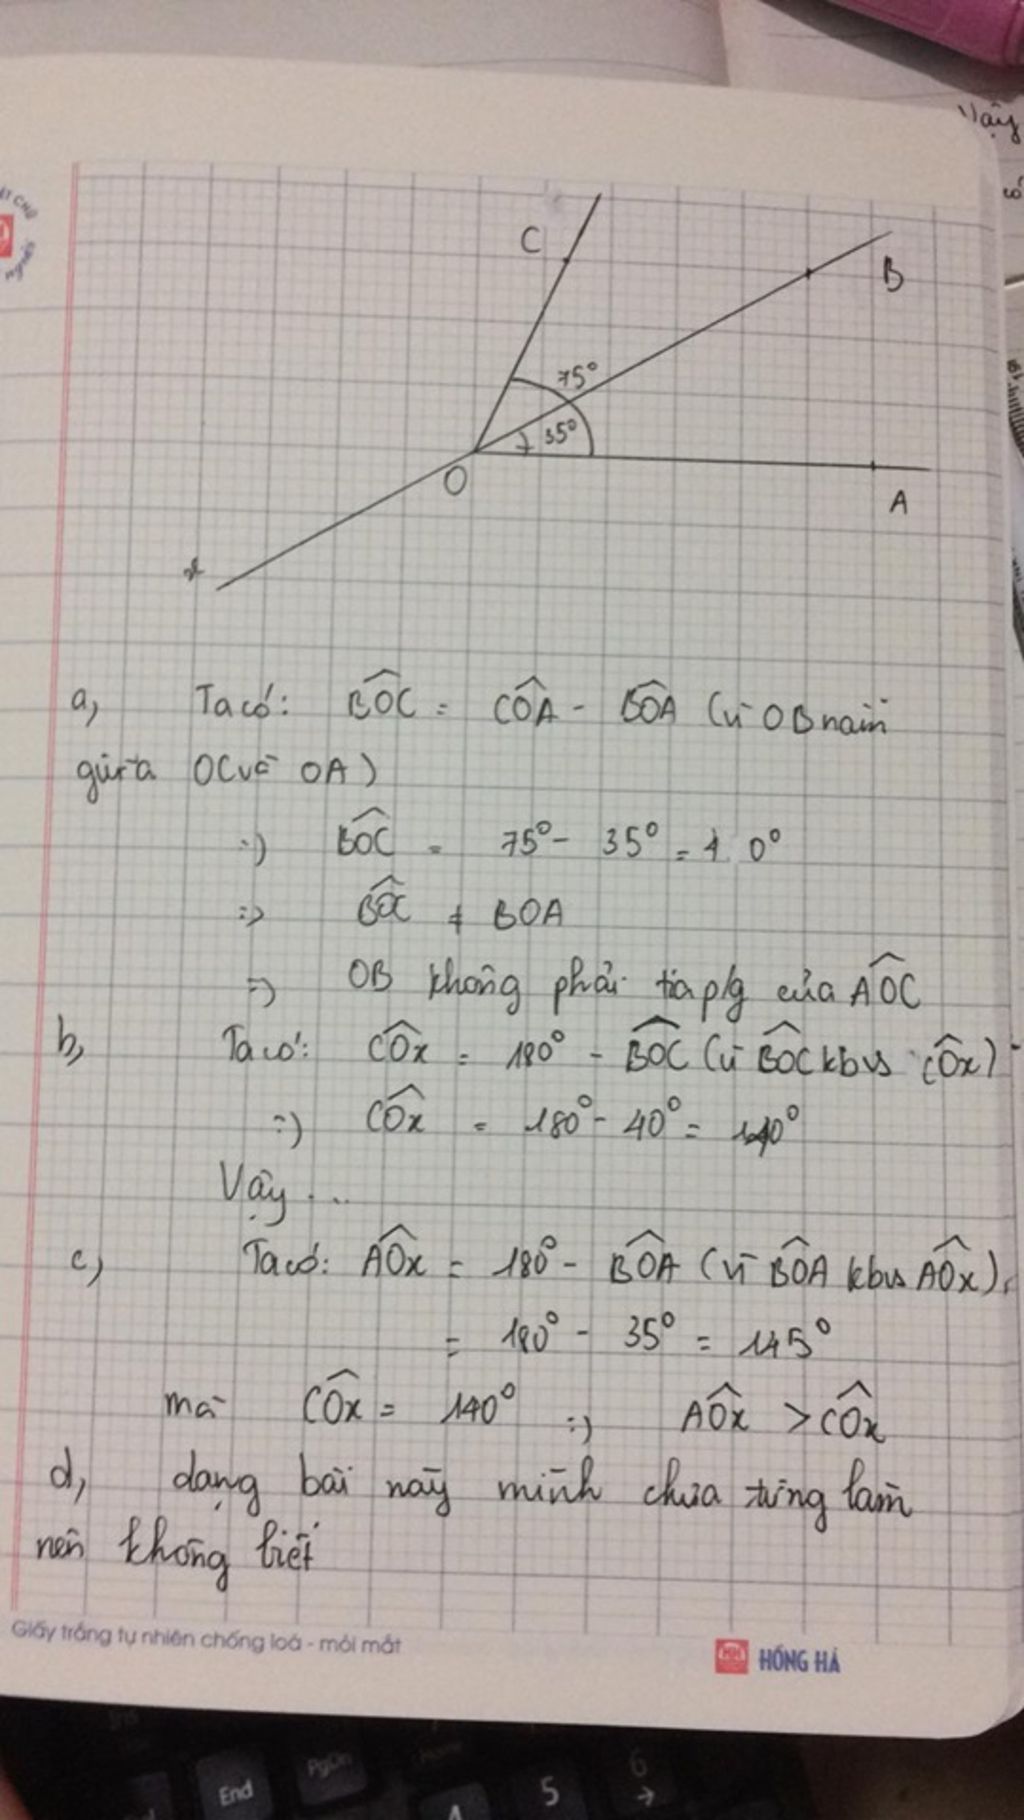 Vậy
C
B
75°
35°
O
A
x
a, Ta có: BÔC = CÔA - BÔA (vì OB nằm
giữa OC và OA)
=> BÔC = 75° - 35° = 40°
=> BÔC ≠ BOA
=> OB không phải tia p/g của AÔC
b, Ta có: CÔx = 180° - BÔC (vì BÔC kbvs CÔx)
=> CÔx = 180° - 40° = 140°
Vậy ...
c, Ta có: AÔx = 180° - BÔA (vì BÔA kbvs AÔx)
= 180° - 35° = 145°
mà CÔx = 140° => AÔx > CÔx
d, dạng bài này mình chưa từng làm
nên không biết
Giấy trắng tự nhiên chống loá - mỏi mắt
HỒNG HÀ
End
PgDn
5
6